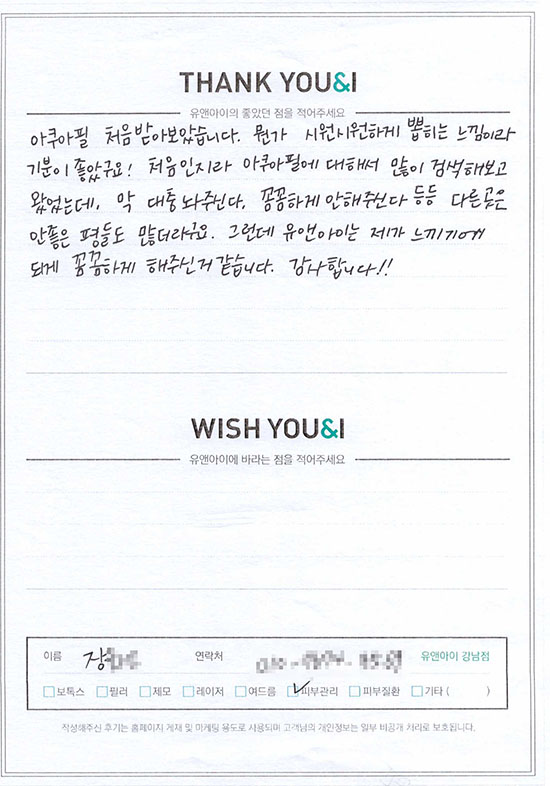 THANK YOU&I
유앤아이의 좋았던 점을 적어주세요
아쿠아필 처음받아보았습니다. 뭔가 시원시원하게 뽑히는 느낌이라
기분이 좋았구요! 처음인지라 아쿠아필에 대해서 많이 검색해보고
왔었는데, 막 대충 놔주신다, 꼼꼼하게 안해주신다 등등 다른곳은
안좋은 평들도 많더라구요. 그런데 유앤아이는 제가 느끼기에
되게 꼼꼼하게 해주신거 같습니다. 감사합니다!!
WISH YOU&I
유앤아이에 바라는 점을 적어주세요
이름 장 연락처 유앤아이 강남점
보톡스 필러 제모 레이저 여드름 피부관리 피부질환 기타 ( )
작성해주신 후기는 홈페이지 게재 및 마케팅 용도로 사용되며 고객님의 개인정보는 일부 비공개 처리로 보호됩니다.